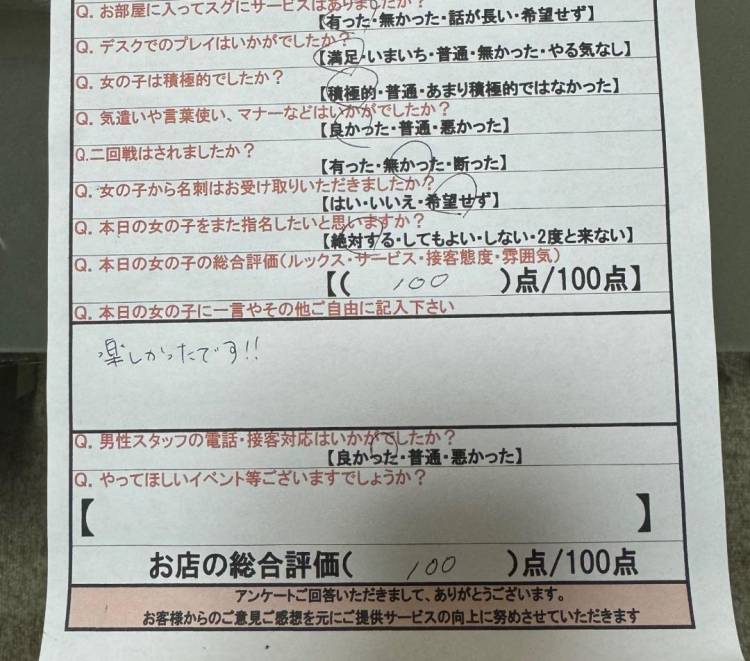 Q. お部屋に入ってスグにサービスはありましたか？
【有った・無かった・話が長い・希望せず】
Q. デスクでのプレイはいかがでしたか？
【満足・いまいち・普通・無かった・やる気なし】
Q. 女の子は積極的でしたか？
【積極的・普通・あまり積極的ではなかった】
Q. 気遣いや言葉使い、マナーなどはいかがでしたか？
【良かった・普通・悪かった】
Q.二回戦はされましたか？
【有った・無かった・断った】
Q. 女の子から名刺はお受け取りいただきましたか？
【はい・いいえ・希望せず】
Q. 本日の女の子をまた指名したいと思いますか？
【絶対する・してもよい・しない・2度と来ない】
Q. 本日の女の子の総合評価（ルックス・サービス・接客態度・雰囲気）
【（ 100 ）点/100点】
Q. 本日の女の子に一言やその他ご自由に記入下さい
楽しかったです!!
Q. 男性スタッフの電話・接客対応はいかがでしたか？
【良かった・普通・悪かった】
Q. やってほしいイベント等ございますでしょうか？
【 】
お店の総合評価（ 100 ）点/100点
アンケートご回答いただきまして、ありがとうございます。
お客様からのご意見ご感想を元にご提供サービスの向上に努めさせていただきます